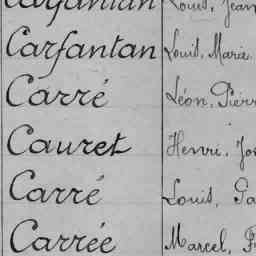 Carfantan Louis, Jean
Carfantan Louis, Marie
Carré Léon, Pierr
Cauret Henri, Jos
Carré Louis, Pa
Carrée Marcel, F